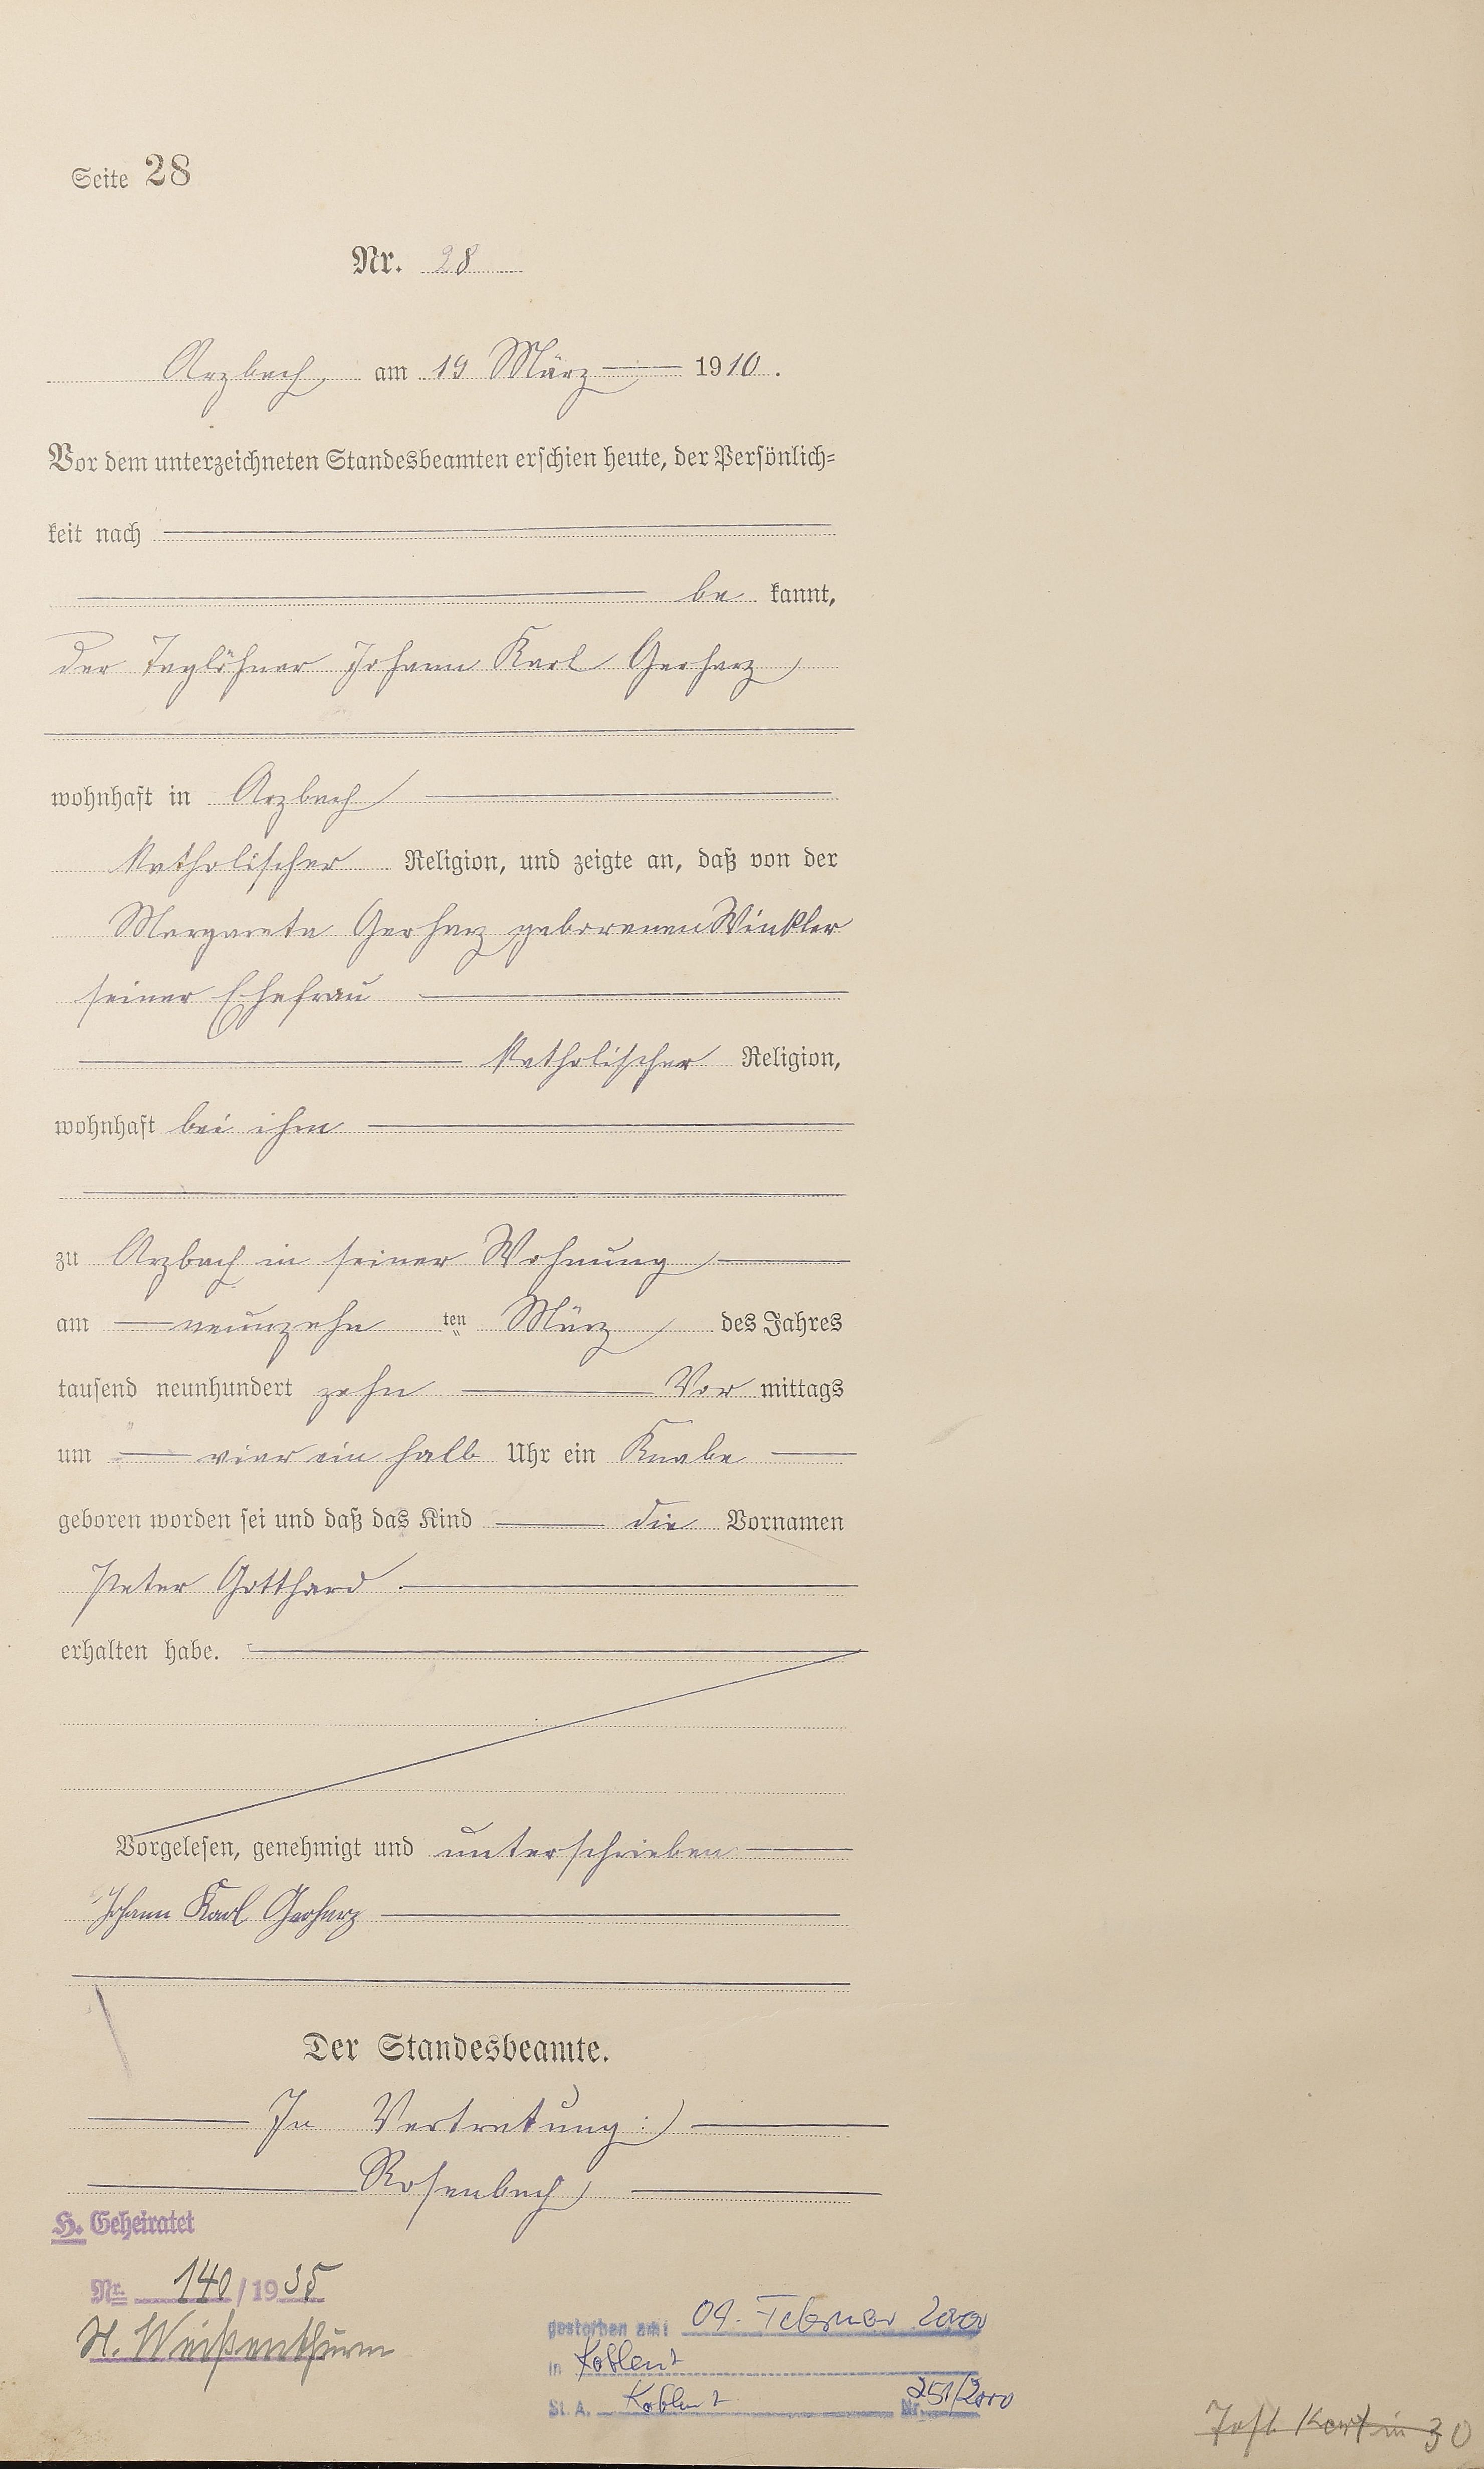 Seite 28
Nr. 28
Arzbach am 19 März 1910.
Vor dem unterzeichneten Standesbeamten erschien heute, der Persönlich=
keit nach
be kannt,
der Taglöhner Johann Karl Gerharz
wohnhaft in Arzbach
katholischer Religion, und zeigte an, daß von der
Margareta Gerharz geborenen Winkler
seiner Ehefrau
katholischer Religion,
wohnhaft bei ihm
zu Arzbach in seiner Wohnung
am neunzehn ten März des Jahres
tausend neunhundert zehn Vor mittags
um vier ein halb Uhr ein Knabe
geboren worden sei und daß das Kind die Vornamen
Peter Gotthard
erhalten habe.
Vorgelesen, genehmigt und unterschrieben
Johann Karl Gerharz
Der Standesbeamte.
In Vertretung:
Rosenbach
H. Geheiratet
Nr. 140/1935
St. Weißenthurm
gestorben am: 09. Februar 2000
in Koblenz
St. A. Koblenz Nr. 251/2000
30